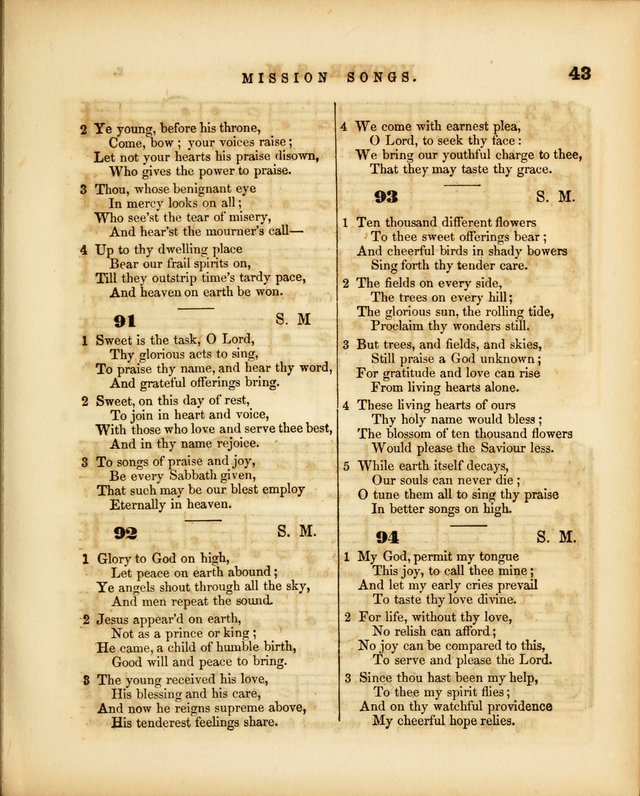 MISSION SONGS.
43
2 Ye young, before his throne,
Come, bow ; your voices raise ;
Let not your hearts his praise disown,
Who gives the power to praise.
3 Thou, whose benignant eye
In mercy looks on all ;
Who see'st the tear of misery,
And hear'st the mourner's call—
4 Up to thy dwelling place
Bear our frail spirits on,
Till they outstrip time's tardy pace,
And heaven on earth be won.
91 S. M
1 Sweet is the task, O Lord,
Thy glorious acts to sing,
To praise thy name, and hear thy word,
And grateful offerings bring.
2 Sweet, on this day of rest,
To join in heart and voice,
With those who love and serve thee best,
And in thy name rejoice.
3 To songs of praise and joy,
Be every Sabbath given,
That such may be our blest employ
Eternally in heaven.
92 S. M.
1 Glory to God on high,
Let peace on earth abound ;
Ye angels shout through all the sky,
And men repeat the sound.
2 Jesus appear'd on earth,
Not as a prince or king ;
He came, a child of humble birth,
Good will and peace to bring.
3 The young received his love,
His blessing and his care,
And now he reigns supreme above,
His tenderest feelings share.
4 We come with earnest plea,
O Lord, to seek thy face :
We bring our youthful charge to thee,
That they may taste thy grace.
93 S. M.
1 Ten thousand different flowers
To thee sweet offerings bear ;
And cheerful birds in shady bowers
Sing forth thy tender care.
2 The fields on every side,
The trees on every hill ;
The glorious sun, the rolling tide,
Proclaim thy wonders still.
3 But trees, and fields, and skies,
Still praise a God unknown ;
For gratitude and love can rise
From living hearts alone.
4 These living hearts of ours
Thy holy name would bless ;
The blossom of ten thousand flowers
Would please the Saviour less.
5 While earth itself decays,
Our souls can never die ;
O tune them all to sing thy praise
In better songs on high.
94 S. M.
1 My God, permit my tongue
This joy, to call thee mine ;
And let my early cries prevail
To taste thy love divine.
2 For life, without thy love,
No relish can afford ;
No joy can be compared to this,
To serve and please the Lord.
3 Since thou hast been my help,
To thee my spirit flies ;
And on thy watchful providence
My cheerful hope relies.